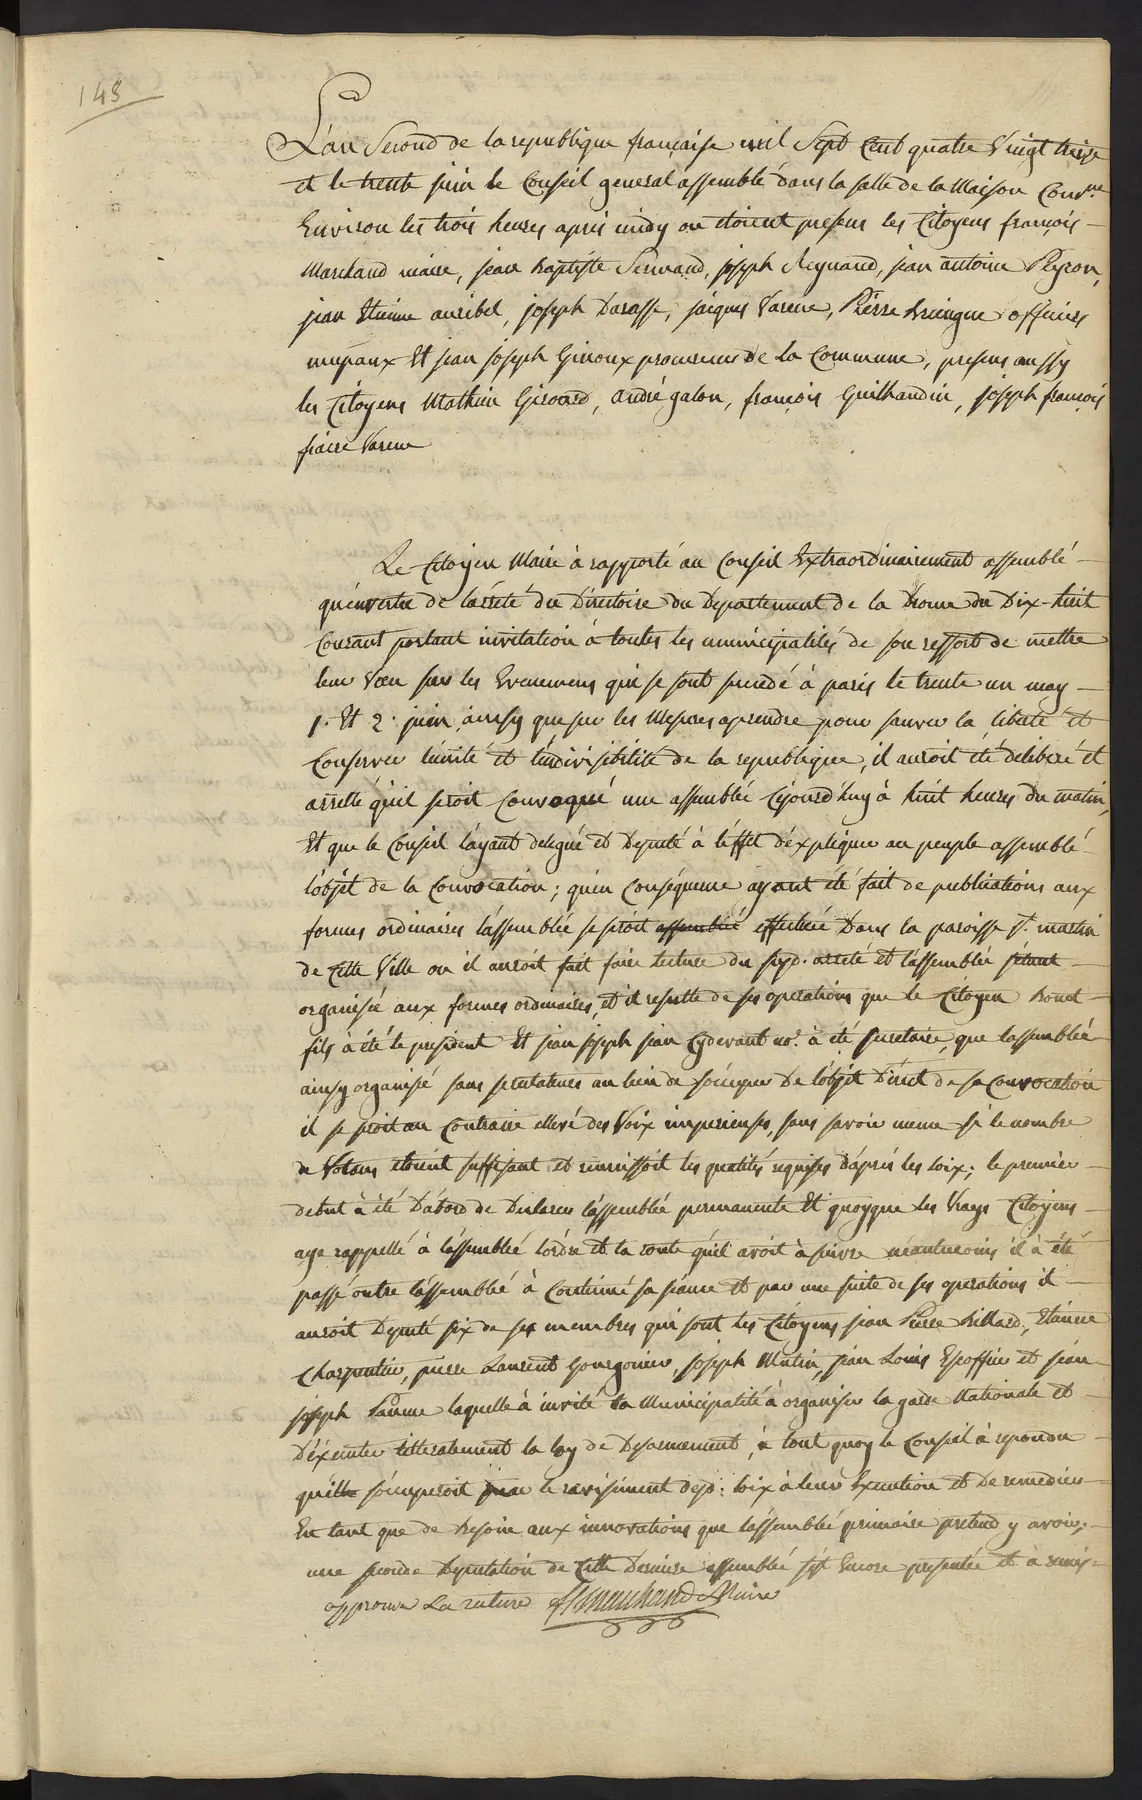 148
L'an second de la republique françaïse mil sept cent quatre vingt treize
et le trente juin le Conseil general assemblé dans la salle de la Maison Comne
Environ les trois heures apres midy ou etoient presens les Citoyens françois
Marchand maire, jean baptiste joseph Reynaud, jean antoine Peyron,
jean Etienne auribel, joseph Darasse, jaiques Varene, Pierre officiers
mupaux Et jean joseph Ginoux procureur de la Commune, presens aussy
les Citoyens Mathieu Girard, andré galon, françois Guilhaudin, joseph françois
fiacre Varene
Le Citoyen Maire à rapporté au Conseil Extraordinairement assemblé
qu'en vertu de l'arreté du Directoire du Departement de la Drome du Dix-huit
Courant portant invitation à toutes les municipalités de son ressort de mettre
leur Vœu sur les Evenemens qui se sont succedé à paris le trente un may
1. Et 2. juin, ainsy que sur les Mesures aprendre pour sauver la liberté et
Conserver lunité et l'indivisibilité de la republique, il auroit été deliberé et
arretté qu'il seroit Convoqué une assemblée Cejourd'huy à huit heures du matin,
Et que le Conseil l'ayant delegué et Deputé à l'effet d'expliquer au peuple assemblé
l'objet de la Convocation; qu'en Conséquence ayant été fait de publications aux
formes ordinaires l'assemblée se seroit assemblée effectuée Dans la paroisse St. martin
de Cette Ville ou il auroit fait faire lecture du susd. arreté et l'assemblée s'étant
organisée aux formes ordinaires, et il resulte de ses operations que le Citoyen
fils à été le president Et jean joseph jean Cydevant no.e à été secretaire, que l'assemblée
ainsy organisé sans scrutateurs au lieu de s'occuper De l'objet Direct de sa Convocation
il se seroit au Contraire ellevé des Voix imperieuses, sans savoir meme si le nombre
de Votans etoient suffisant et reunissoit les qualités requises d'après les loix; le premier
debut à été D'abord de Declarer l'assemblée permanente Et quoyque les Vrays Citoyens
aye rappellé à l'assemblée l'ordre et la route qu'il avoit à suivre néantmoins il à été
passé outre l'assemblée à Continué sa séance et par une suite de ses operations il
auroit Deputé six de ses membres qui sont les Citoyens jean Pierre Billard, Etienne
Charpentier, pierre Laurent Gourgonier, joseph Mutin, jean Louis Escoffier et jean
joseph Paume laquelle à invité la Municipalité à organiser la garde Nationale et
D'éxecuter litteralement la loy de Desarmement, à tout quoy le Conseil à repondu
quille s'occuperoit le ravisiment desd: loix à leur Execution et De remedier
En tant que de besoin aux innovations que l'assemblée primaire pretend y avoir;
une seconde Deputation de Cette Derniere assemblée s'est Encore presentée et à remis
approuvé La rature Marchand Maire